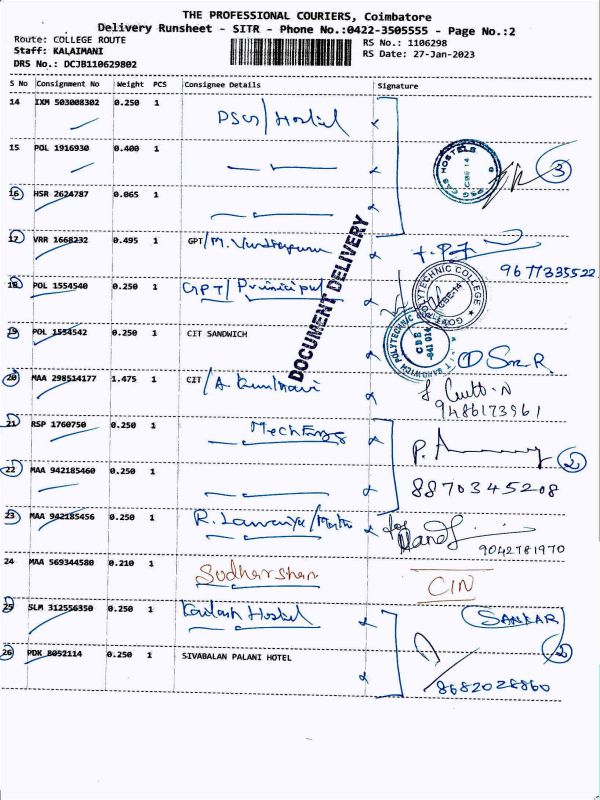 THE PROFESSIONAL COURIERS, Coimbatore
Delivery Runsheet - SITR - Phone No.:0422-3505555 - Page No.:2
Route: COLLEGE ROUTE
Staff: KALAIMANI
DRS No.: DCJB110629802
RS No.: 1106298
RS Date: 27-Jan-2023
S No Consignment No Weight PCS Consignee Details Signature
14 IXM 503008302 0.250 1 PSG/Hostel
15 POL 1916930 0.400 1
PSG CAS HOSTELS CBE 14
3
16 HSR 2624787 0.065 1
17 VRR 1668232 0.495 1 GPT/M.
9677335522
18 POL 1554540 0.250 1 GPT/Principal
POLYTECHNIC COLLEGE CBE-14 GOVT
DOCUMENT DELIVERY
19 POL 1554542 0.250 1 CIT SANDWICH
SANDWICH POLYTECHNIC CBE -641 014
20 MAA 298514177 1.475 1 CIT/A.
9486173961
21 RSP 1760750 0.250 1 Mech Engg
P.
2
22 MAA 942185460 0.250 1
8870345208
23 MAA 942185456 0.250 1 R.
for
9042781970
24 MAA 569344580 0.210 1 Sudharshan CIN
25 SLM 312556350 0.250 1 Kailash Hostel SANKAR
2
26 PDK 8052114 0.250 1 SIVABALAN PALANI HOTEL
8682028860